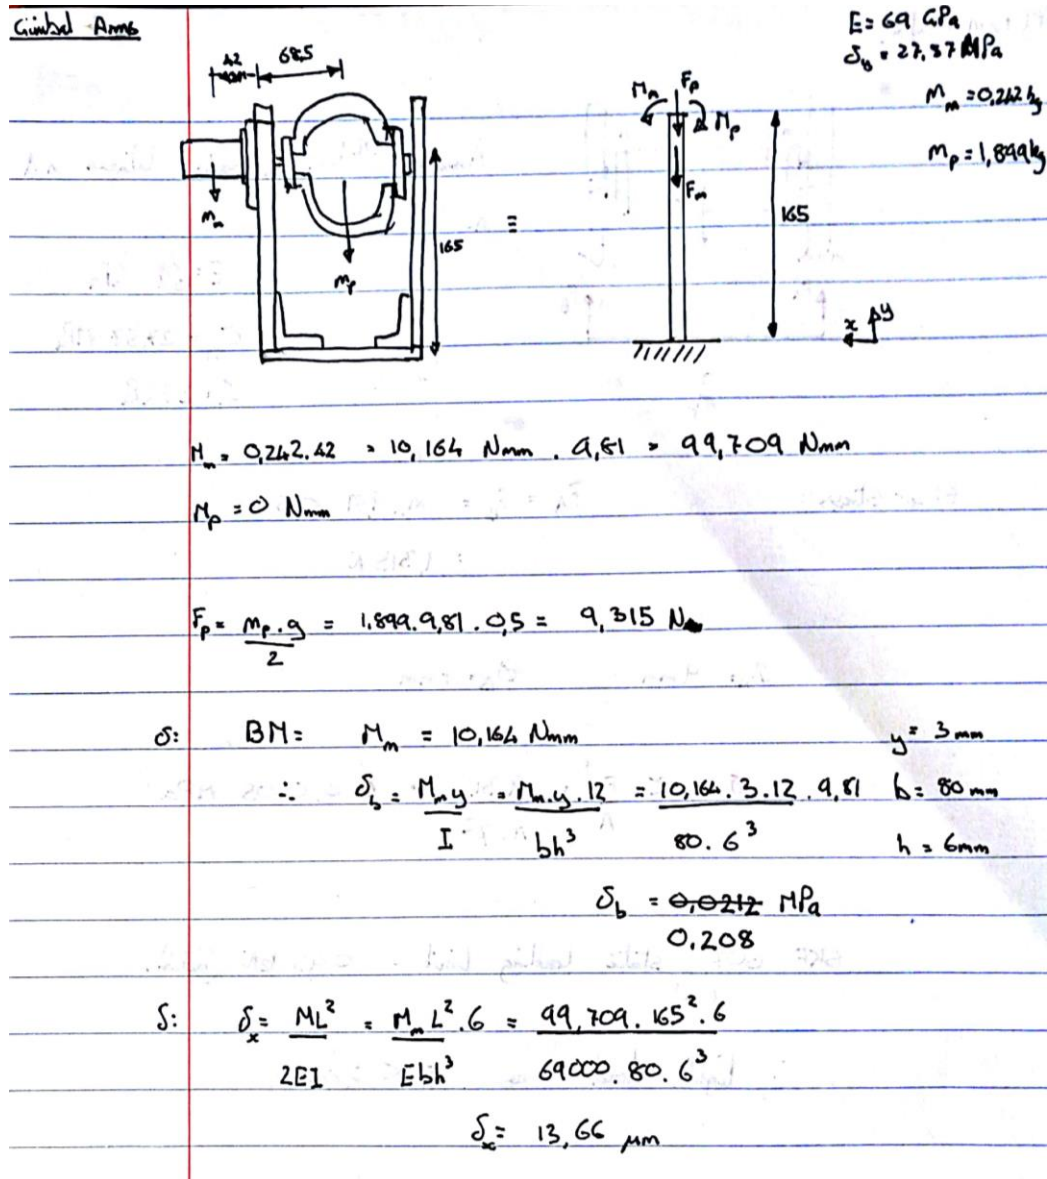 Gimbal Arms
E = 69 GPa
σ_b = 27,57 MPa
m_m = 0,242 kg
m_p = 1,899 kg
42 mm
68,5
m_m
m_p
165
≡
M_m F_p M_p
F_m
165
x y
M_m = 0,242 . 42 = 10,164 Nmm . 9,81 = 99,709 Nmm
M_p = 0 Nmm
F_p = m_p . g / 2 = 1.899 . 9,81 . 0,5 = 9,315 N
σ: BM = M_m = 10,164 Nmm y = 3 mm
∴ σ_b = M_m y / I = M_m . y . 12 / bh³ = 10,164 . 3 . 12 . 9,81 / 80 . 6³ b = 80 mm
h = 6 mm
σ_b = 0,0212 MPa
0.208
δ: δ_x = ML² / 2EI = M_m L² . 6 / Ebh³ = 99,709 . 165² . 6 / 69000 . 80 . 6³
δ_x = 13,66 μm